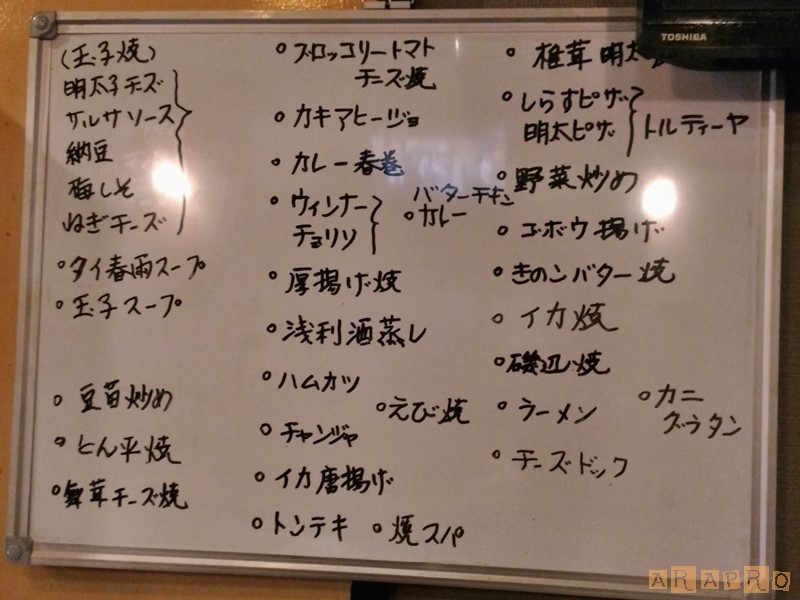 (玉子焼)
明太子チーズ
サルサソース
納豆
梅しそ
ねぎチーズ
タイ春雨スープ
玉子スープ
豆苗炒め
とん平焼
舞茸チーズ焼
ブロッコリートマト
チーズ焼
カキアヒージョ
カレー春巻
ウィンナー
チョリソ
バターチキン
カレー
厚揚げ焼
浅利酒蒸し
ハムカツ
えび焼
チャンジャ
イカ唐揚げ
トンテキ
焼スパ
椎茸明太
しらすピザ
明太ピザ
トルティーヤ
野菜炒め
ゴボウ揚げ
きのこバター焼
イカ焼
磯辺焼
ラーメン
カニ
グラタン
チーズドック
TOSHIBA
ARAPRO